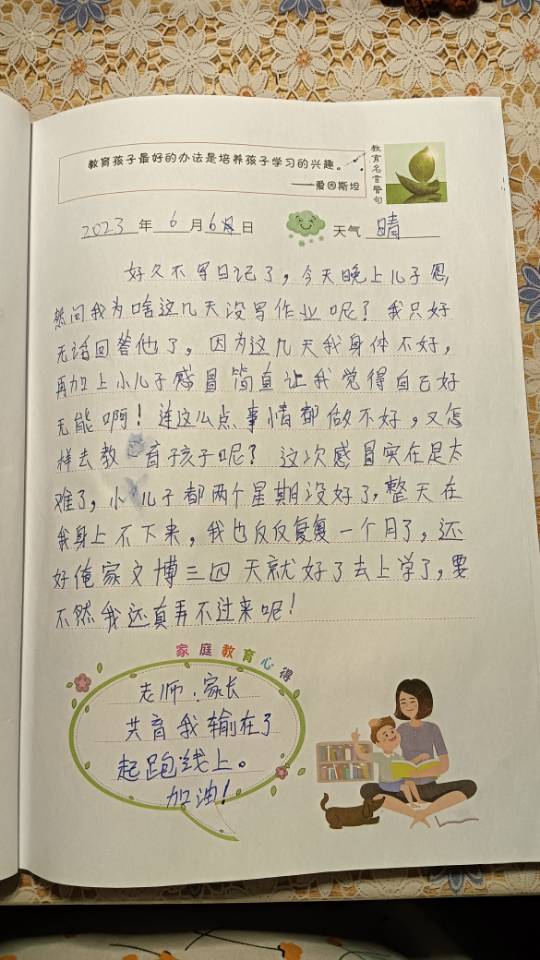 教育孩子最好的办法是培养孩子学习的兴趣。
——爱因斯坦
教育名言警句
2023 年 6 月 6 日
天气 晴
好久不写日记了，今天晚上儿子忽
然问我为啥这几天没写作业呢？我只好
无话回答他了，因为这几天我身体不好，
再加上小儿子感冒简直让我觉得自己好
无能啊！连这么点事情都做不好，又怎
样去教育子孩子呢？这次感冒实在是太
难了，小儿子都两个星期没好了，整天在
我身上不下来，我也反反复复一个月了，还
好俺家文博三四天就好了去上学了，要
不然我还真弄不过来呢！
家庭教育心得
老师．家长
共育我输在了
起跑线上。
加油！